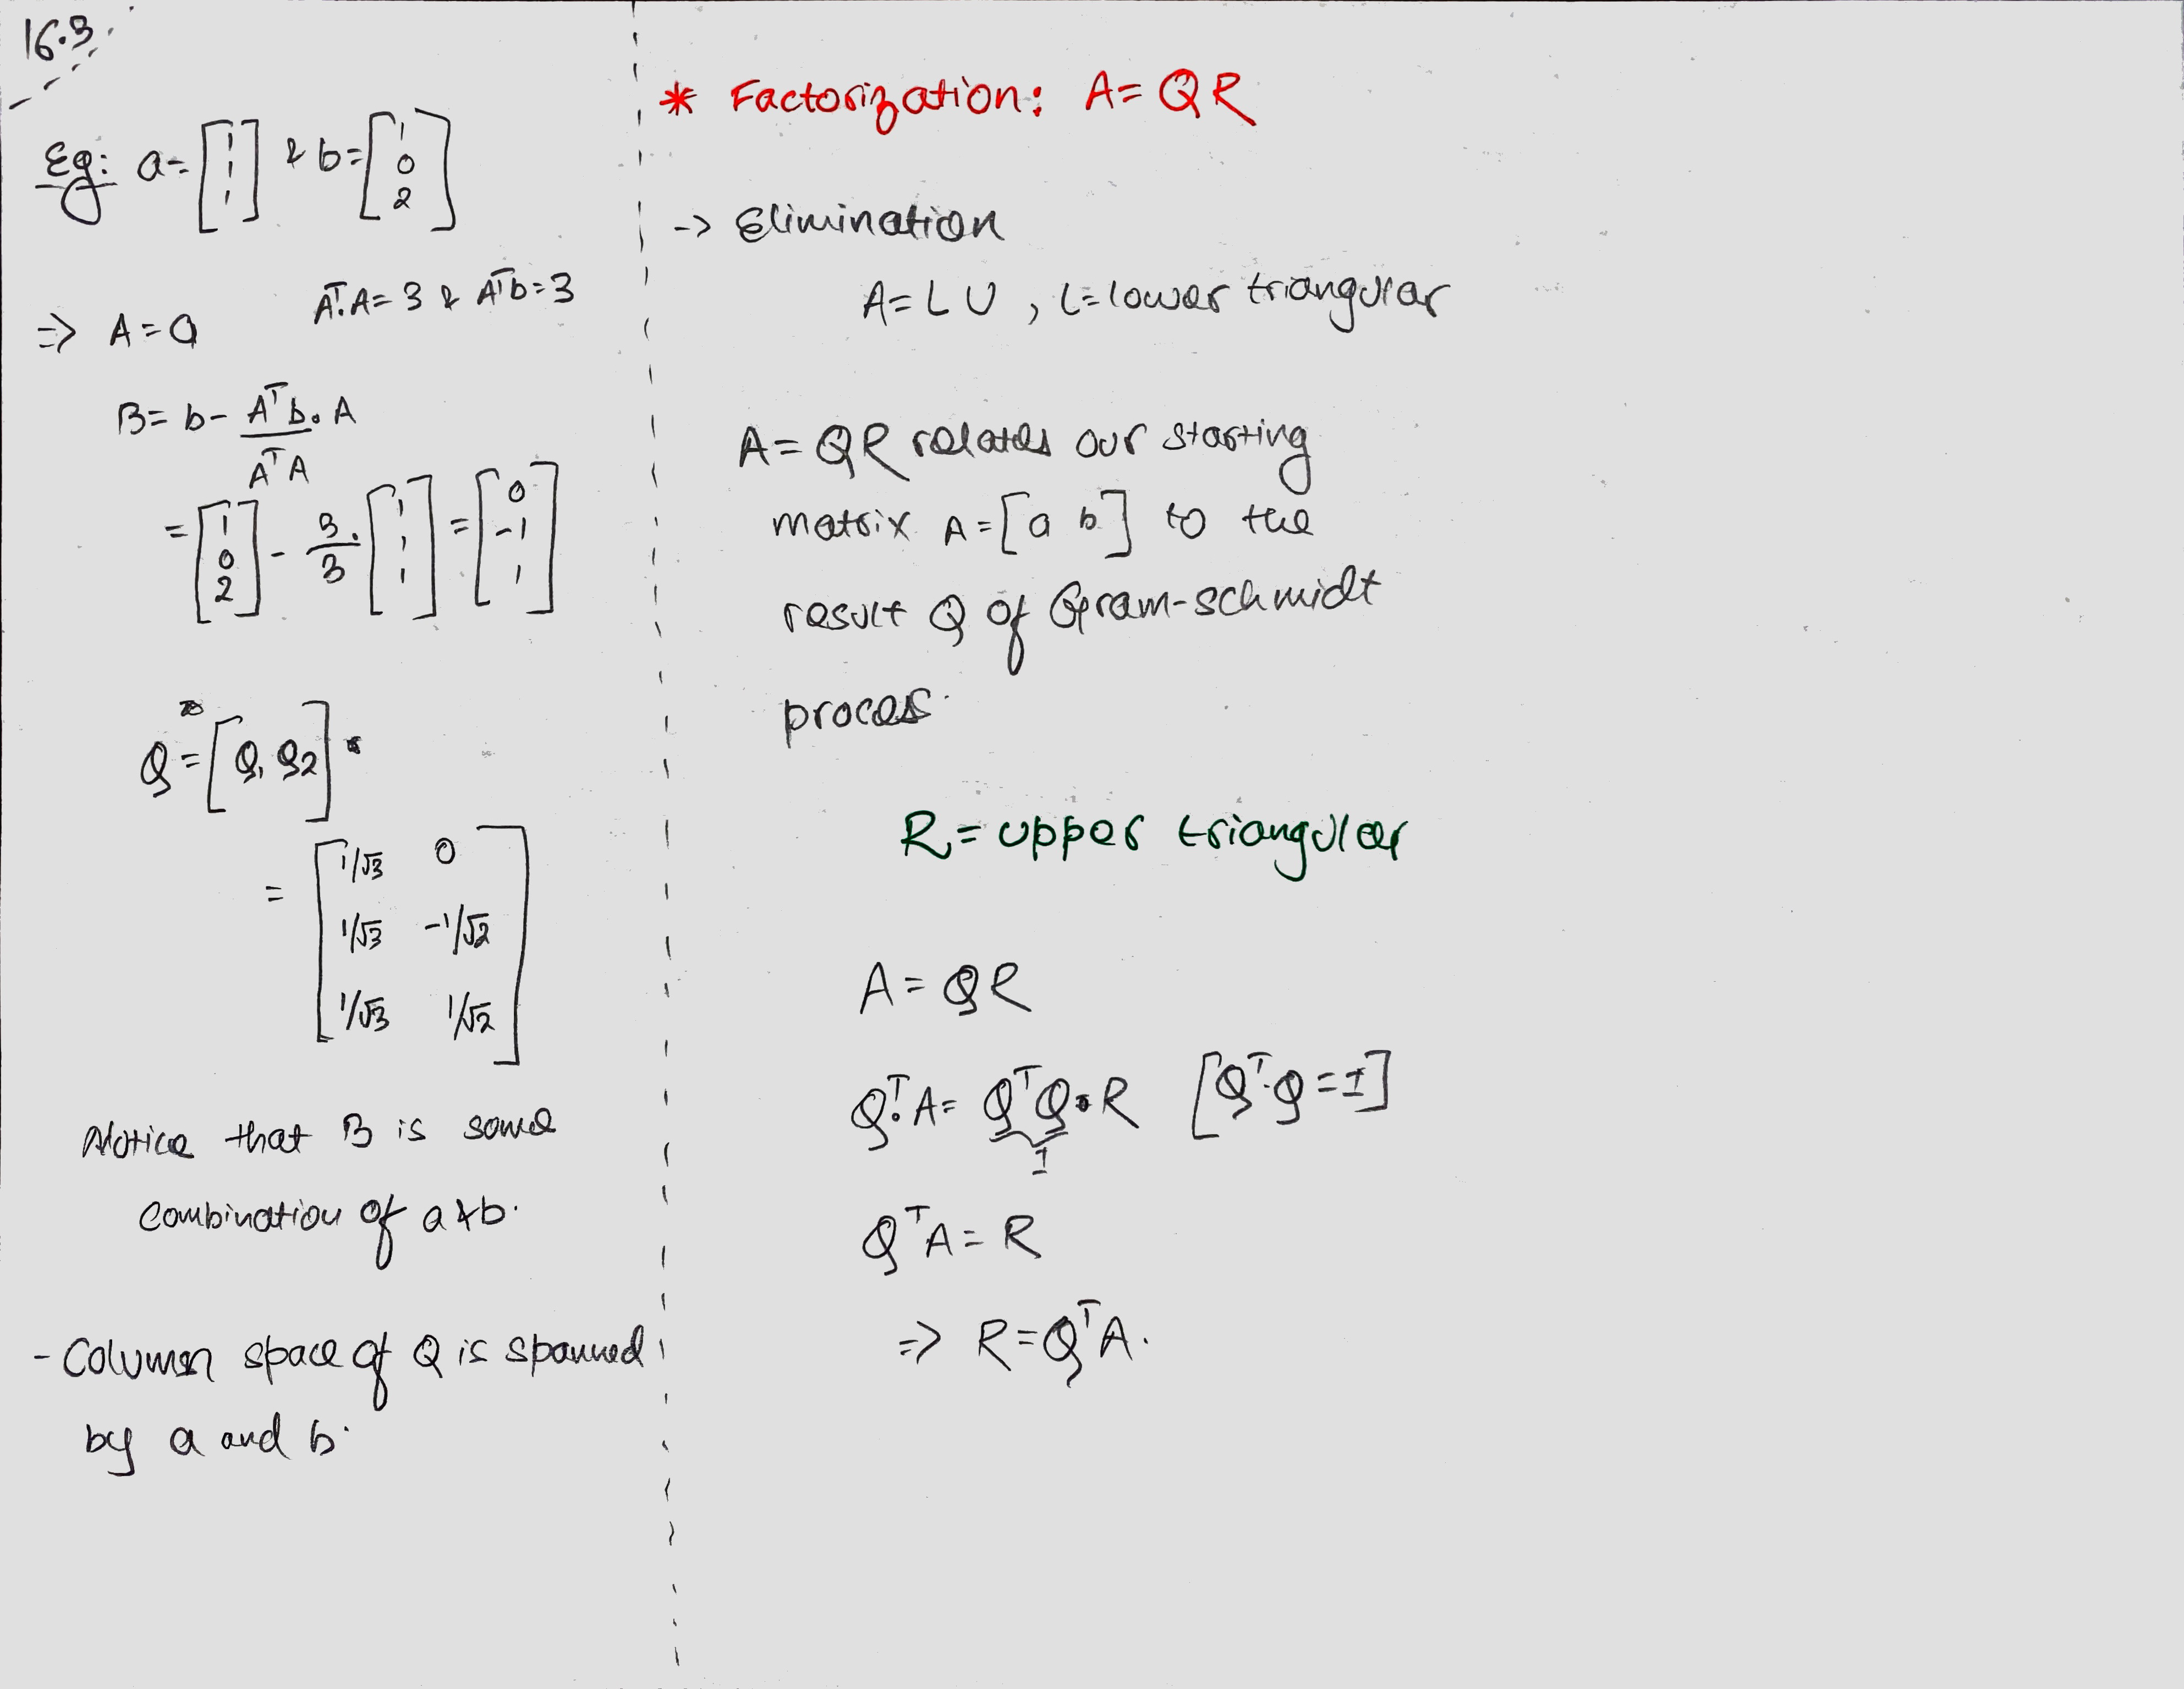 16.3
Eg: a = [1 1 1] & b = [1 0 2]
=> A = a    AᵀA = 3 & Aᵀb = 3
B = b - Aᵀb/AᵀA . A
= [1 0 2] - 3/3 . [1 1 1] = [0 -1 1]
Q = [q₁ q₂]
= [1/√3 0
1/√3 -1/√2
1/√3 1/√2]
Notice that B is some
combination of a & b.
- Column space of Q is spanned
by a and b.
* Factorization: A = QR
-> Elimination
A = LU , L = lower triangular
A = QR relates our starting
matrix A = [a b] to the
result Q of Gram-schmidt
process.
R = upper triangular
A = QR
Qᵀ.A = QᵀQ.R [Qᵀ.Q = I]
I
QᵀA = R
=> R = QᵀA.